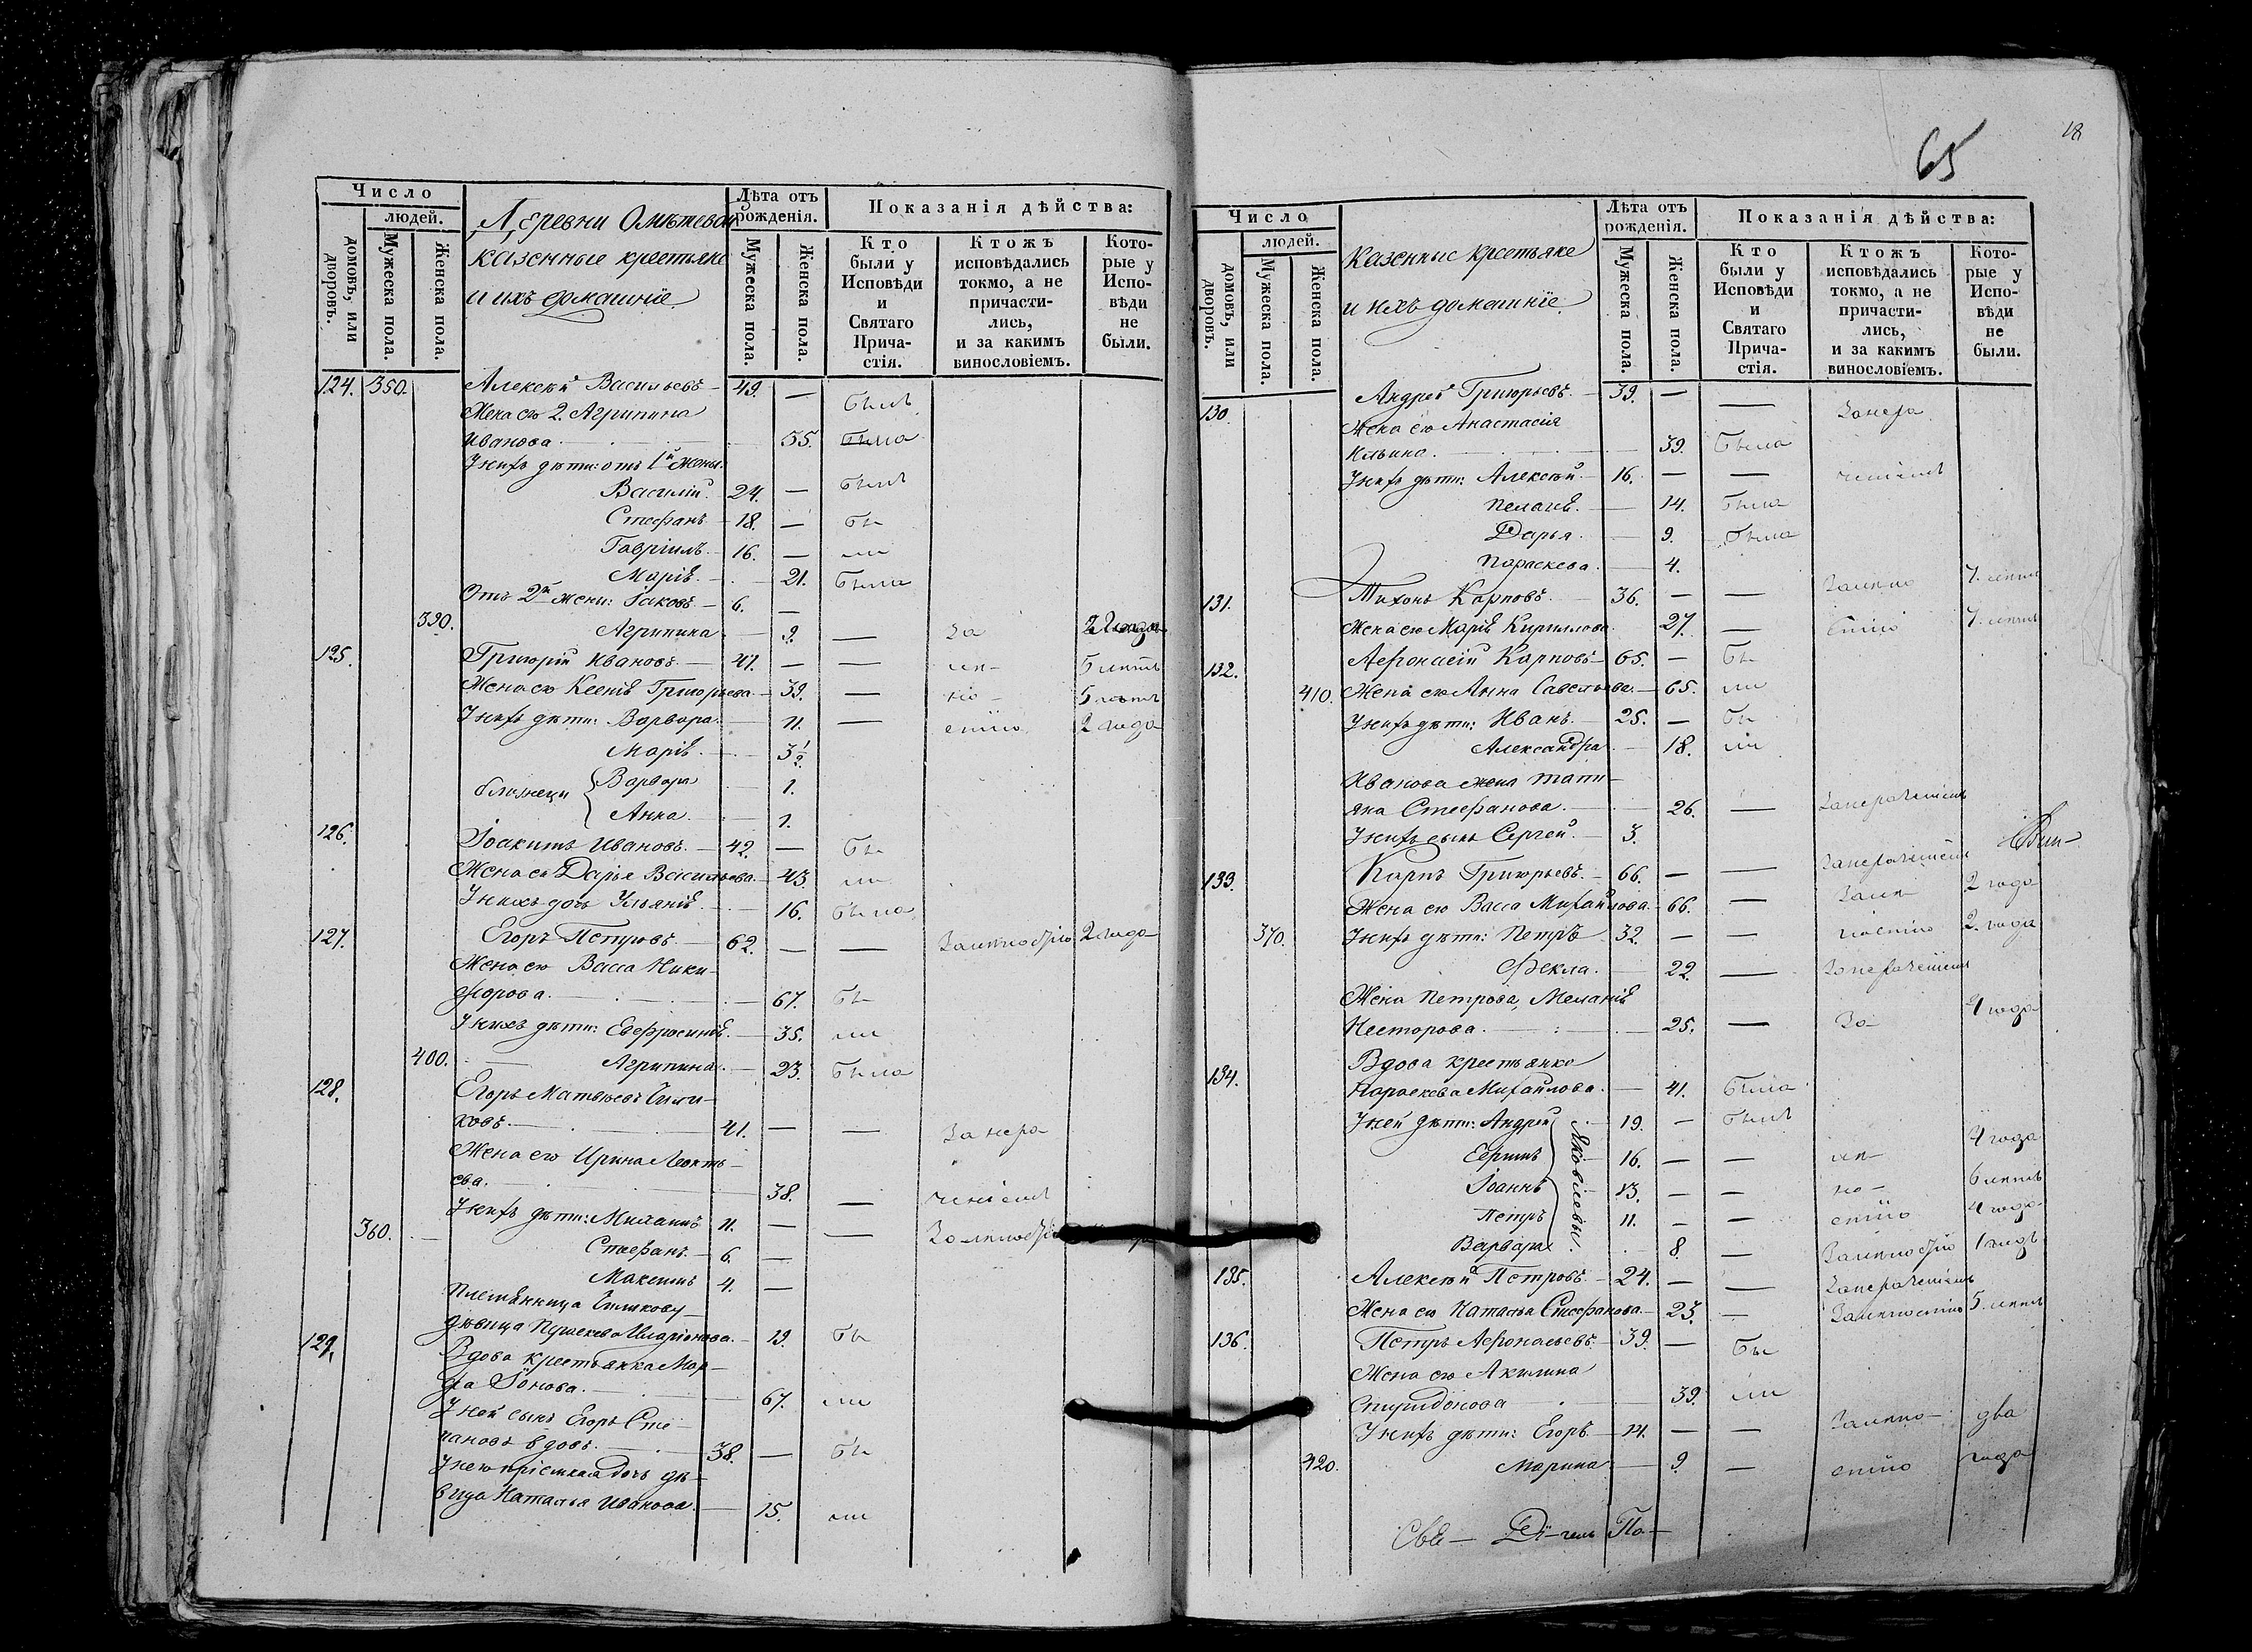 65
18
Число
людей.
домовъ, или дворовъ.
Мужеска пола.
Женска пола.
Деревни
казенные крестьяне
и ихъ домашніе
Лѣта отъ рожденія.
Мужеска пола.
Женска пола.
Показанія дѣйства:
Кто были у Исповѣди и Святаго Причастія.
Ктожъ исповѣдались токмо, а не причастились, и за какимъ винословіемъ.
Которые у Исповѣди не были.
124. 350. Алексѣй Васильевъ 49. — былъ
Жена его 2. Агрипина
Иванова. 55. была
У нихъ дѣти: отъ 1й жены.
Василій. 24. — былъ
Стефанъ 18. — бы
Гавріилъ 16. — ли
Марія. 21. была
Отъ 2й жены: Іаковъ 6. —
390. Агрипина 9. — за
125. Григорій Ивановъ 47. — — 5 лѣтъ
Жена его Ксенія Григорьева 39. — 5 лѣтъ
У нихъ дѣти: Варвара. 11. — 2 года
Марія. 3 1/2
близнецы Варвара 1.
Анна. 1.
126. Іоакимъ Ивановъ. 42. — бы
Жена ег Дарья Васильева. 43. ли
У нихъ дочь Уліанія. 16. была
127. Егоръ Петровъ 62. — — 2 года
Жена его Васса Ники-
форова. 67. бы
У нихъ дѣти: Евфросинія. 35. ли
400. Агрипина. 23. была
128. Егоръ Матвѣевъ
ховъ. 41. — — за нера
Жена его Ирина Леонть-
ева. 38. — ченіемъ
У нихъ дѣти: 11. — —
360. Стефанъ. 6. —
Максимъ 4. —
Племянница
дѣвица Иларіонова. 19. бы
129. Вдова крестьянка Мар-
фа Іонова. 67. ли
У ней сынъ Егоръ Сте-
пановъ вдовъ. 38. — бы
У него пріемная дочь дѣ-
вица Наталья Иванова. 15. ли
Число
людей.
домовъ, или дворовъ.
Мужеска пола.
Женска пола.
Казенные крестьяне
и ихъ домашніе.
Лѣта отъ рожденія.
Мужеска пола.
Женска пола.
Показанія дѣйства:
Кто были у Исповѣди и Святаго Причастія.
Ктожъ исповѣдались токмо, а не причастились, и за какимъ винословіемъ.
Которые у Исповѣди не были.
130. Андрей Григорьевъ. 39. — — за нера
Жена его Анастасія
Ильина. 39. была
У нихъ дѣти: Алексѣй 16. — — ченіемъ
Пелагія. 14. была
Дарья. 9. была
Параскева. 4.
131. Тихонъ Карповъ. 36. — — 7. лѣтъ
Жена его Марія Кириллова 27. — 7. лѣтъ
132. Афонасій Карповъ 65. — бы
410. Жена его Анна Савельева. 65. ли
У нихъ дѣти: Иванъ. 25. — бы
Александра 18. ли
Иванова жена Тати-
яна Стефанова. 26. — за нераченіемъ
У нихъ сынъ Сергей. 3.
133. Карпъ Григорьевъ. 66. — — за нераченіемъ
Жена его Васса Михайлова. 66. — 2 года
370. У нихъ дѣти: Петръ 32. — — 2. года
Фекла. 22. — за нераченіемъ
Жена Петрова, Меланія
Несторова. 25. — за 4 года
134. Вдова крестьянка
Параскева Михайлова. 41. была
У ней дѣти: Андрей 19. — былъ
Ефимъ 16. — — 4 года
Іоаннъ 13. — — 6 лѣтъ
Петръ 11. — — 4 года
Яковлевы.
Варвара 8. — 1 годъ
135. Алексѣй Петровъ. 24. — — за нераченіемъ
Жена его Наталья Стефанова. 23. — 5. лѣтъ
136. Петръ Афонасьевъ. 39. — бы
Жена его Акилина
Спиридонова 39. ли
У нихъ дѣти: Егоръ. 14. — — два
420. Марина 9. — года